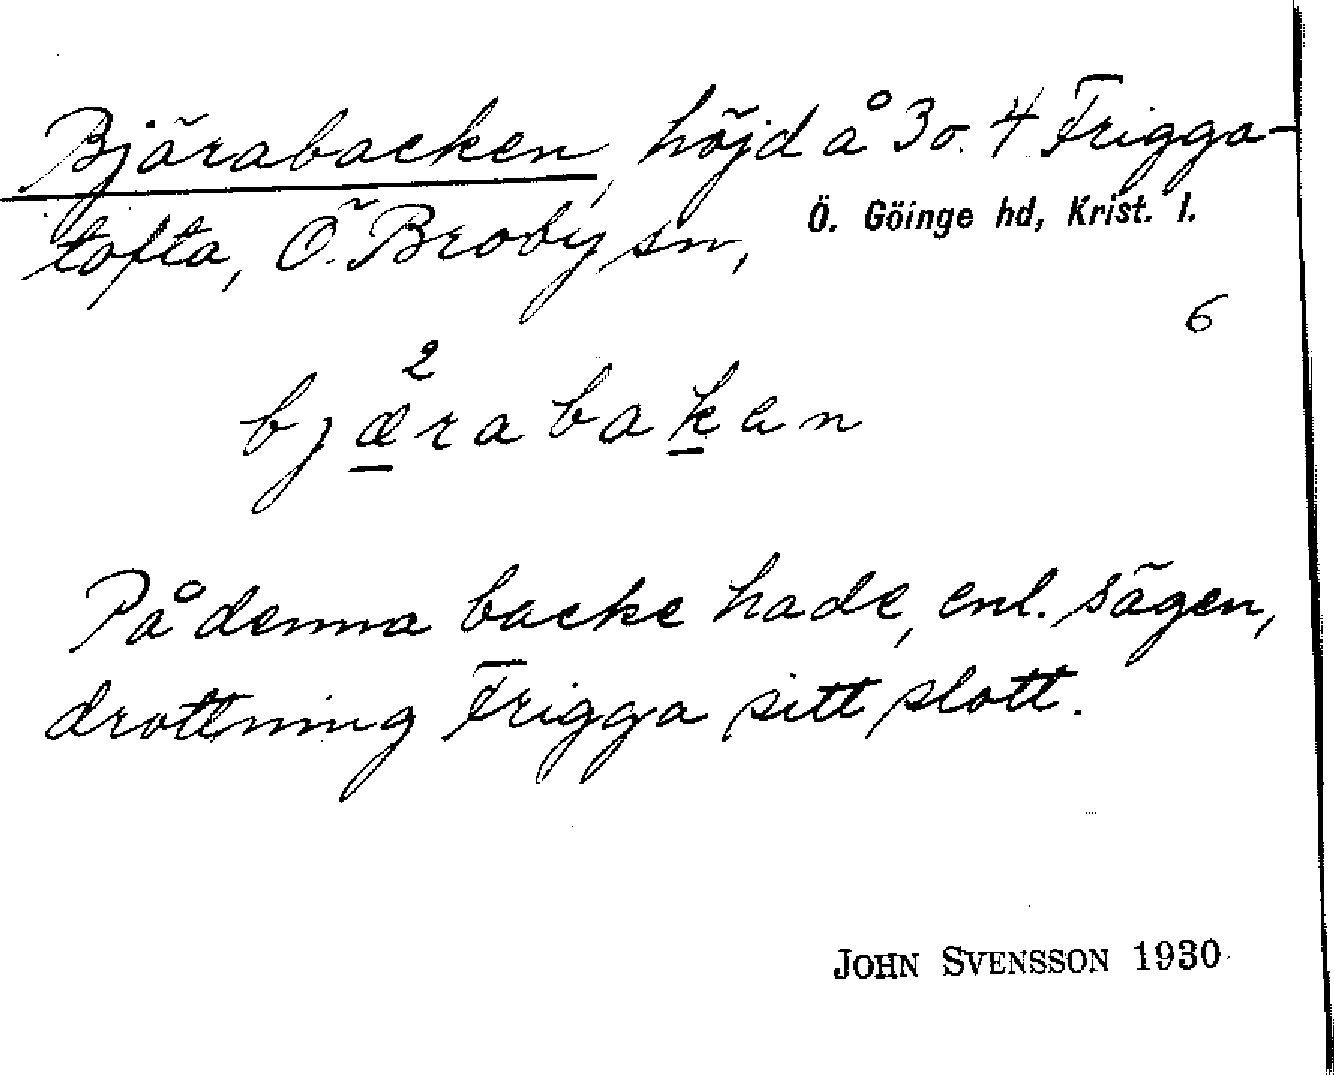 Bjärabacken, höjd å 3 o. 4 Frigga-
tofta, Ö. Broby sn, Ö. Göinge hd, Krist. l.
6
2
bjærabakan
På denna backe hade, enl. sägen,
drottning Frigga sitt slott.
JOHN SVENSSON 1930